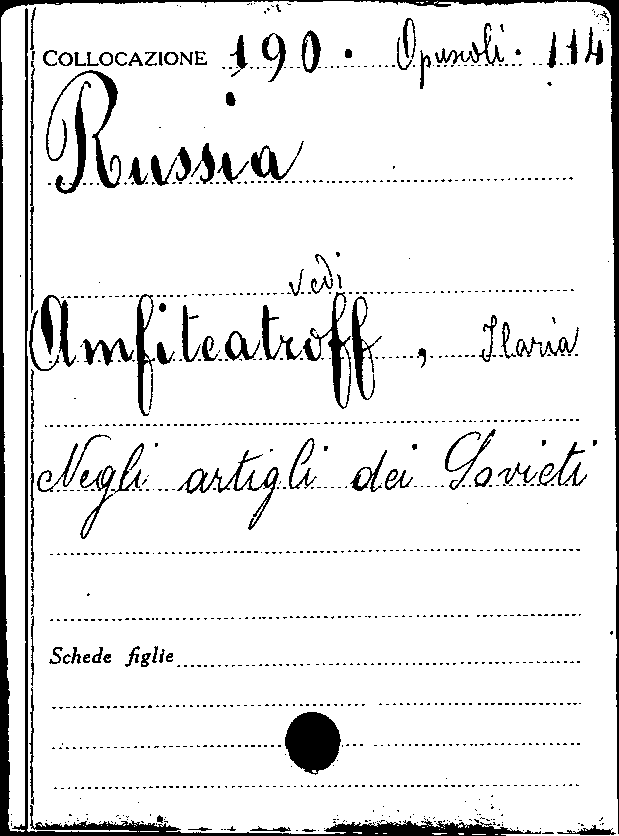 COLLOCAZIONE 190. Opuscoli. 114
Russia
vedi
Amfiteatroff, Ilaria
Negli artigli dei Sovieti
Schede figlie